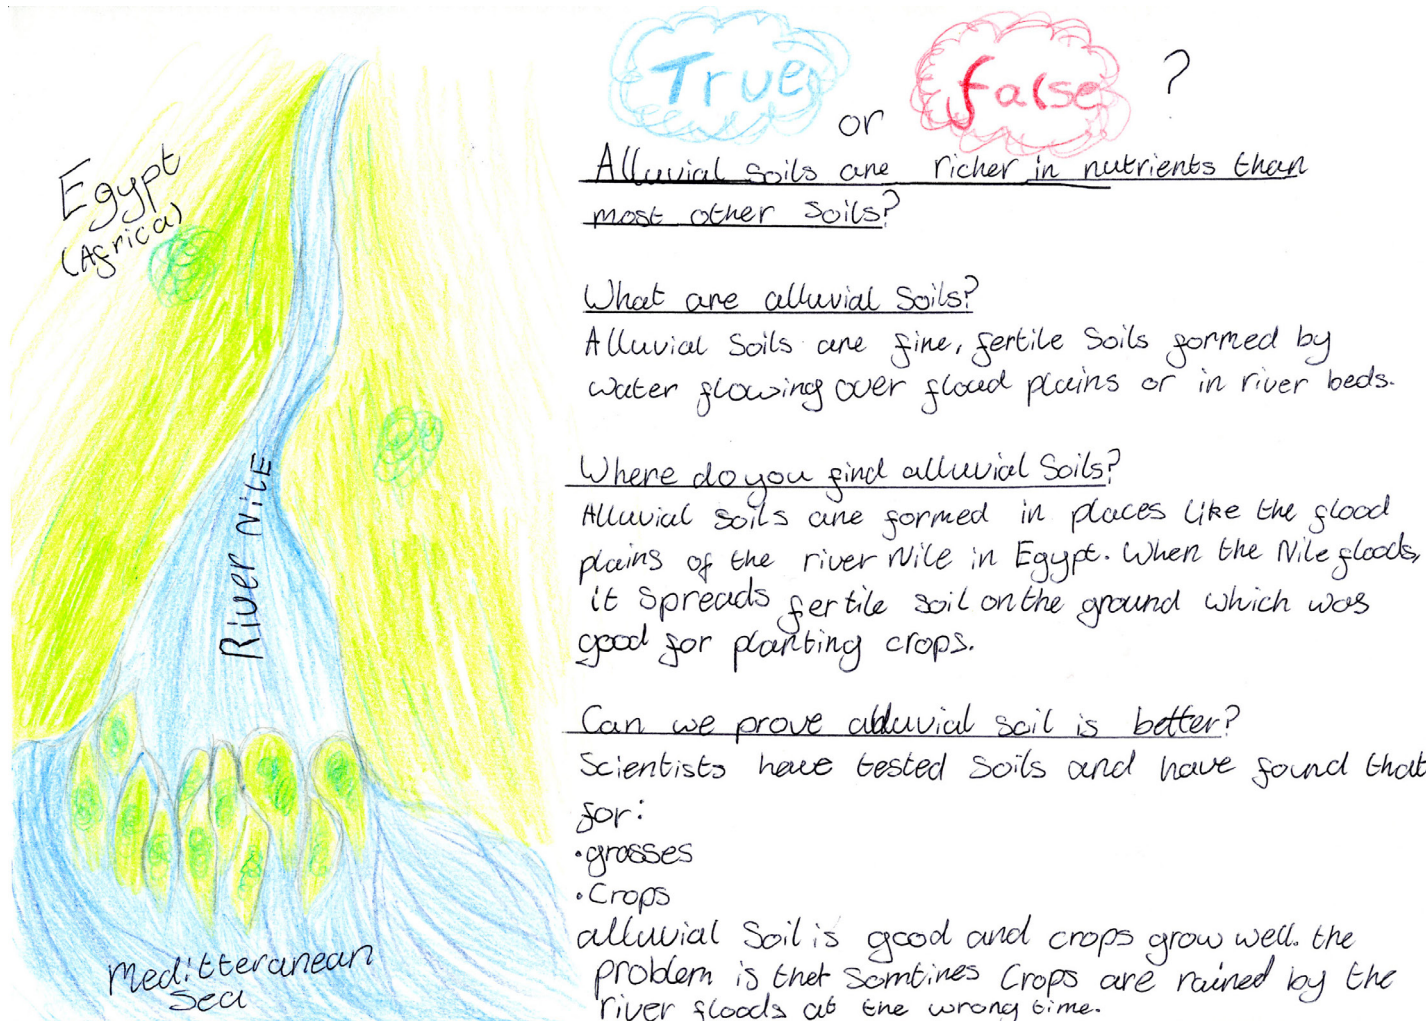 True or false ?
Alluvial Soils are richer in nutrients than
most other Soils?
What are alluvial Soils?
Alluvial Soils are fine, fertile Soils formed by
water flowing over flood plains or in river beds.
Where do you find alluvial Soils?
Alluvial Soils are formed in places like the flood
plains of the river Nile in Egypt. When the Nile floods,
it spreads fertile soil on the ground which was
good for planting crops.
Can we prove alluvial soil is better?
Scientists have tested Soils and have found that
for:
•grasses
•Crops
alluvial Soil is good and crops grow well. the
problem is thet Somtines Crops are rained by the
river floods at the wrong time.
Egypt
(Africa)
River Nile
Meditteranean
Sea